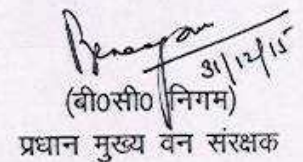 31/12/15
(बी०सी० निगम)
प्रधान मुख्य वन संरक्षक